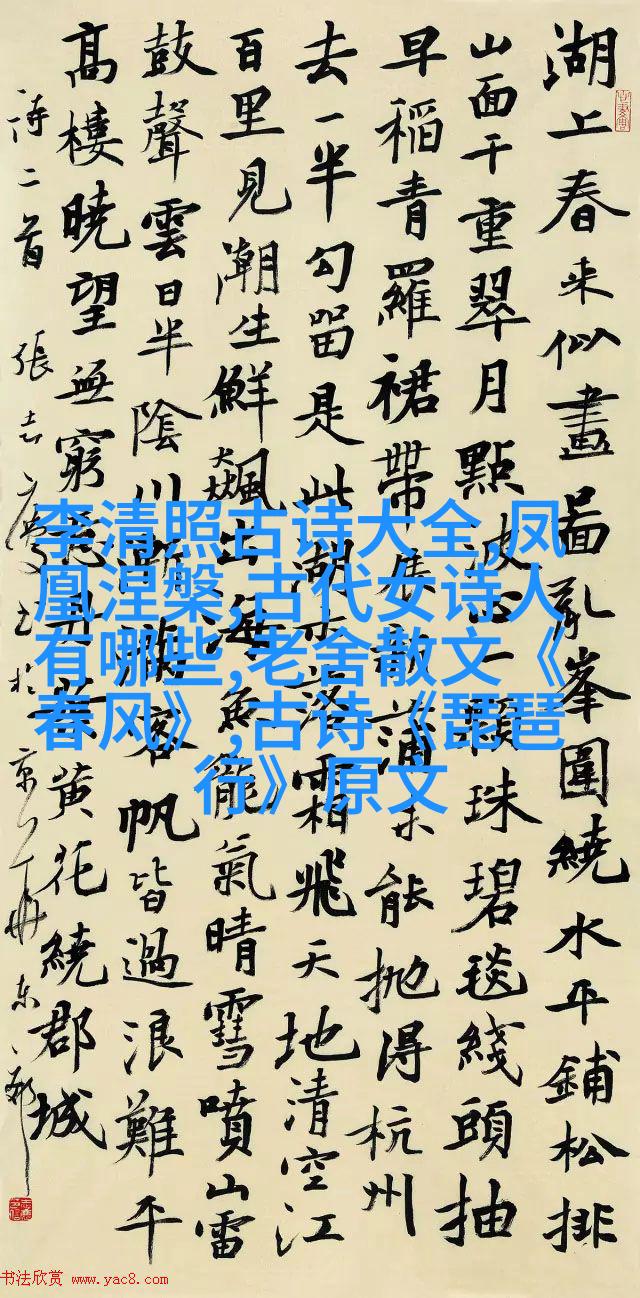 湖上春来似畫圖亂峯圍繞水平鋪松排
山面千重翠月點波心一顆珠碧毯綫頭抽
早稻青羅裙帶展新蒲未能抛得杭州
去一半勾留是此湖木落霜飛天地清空江
百里見潮生鮮飇出海魚龍氣晴雪噴山雷
鼓聲雲日半陰川漸滿客帆皆過浪難平
高樓曉望無窮意丹葉黄花繞郡城
詩二首 張志
李清照古诗大全,凤
凰涅槃,古代女诗人
有哪些,老舍散文《
春风》,古诗《琵琶
行》原文
书法欣赏 www.yac8.com